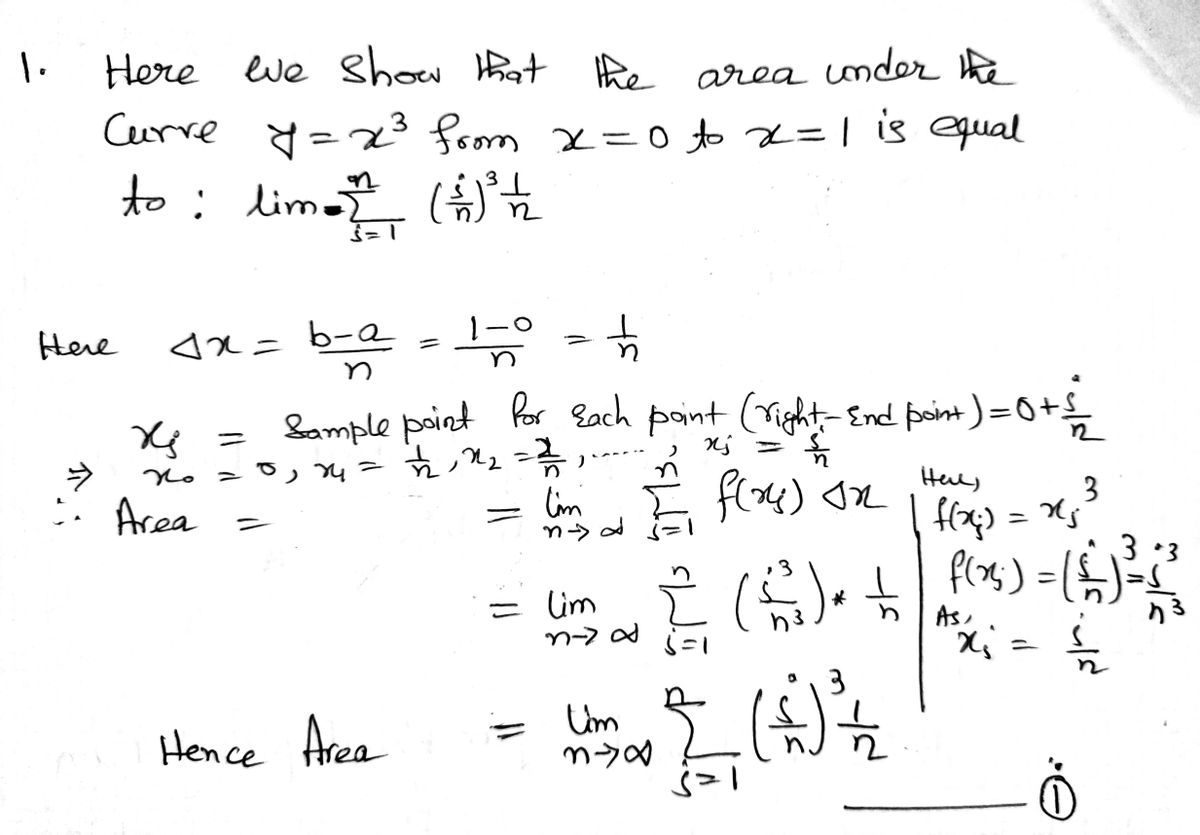 1. Here we show that the area under the
Curve y = x³ from x = 0 to x = 1 is equal
to : lim Σ_{i=1}^{n} (i/n)³ 1/n
Here Δx = (b-a)/n = (1-0)/n = 1/n
xᵢ = Sample point for Each point (right-End point) = 0 + i/n
⇒ x₀ = 0, x₁ = 1/n, x₂ = 2/n, ......, xᵢ = i/n
∴ Area = = lim_{n→∞} Σ_{i=1}^{n} f(xᵢ) Δx
= lim_{n→∞} Σ_{i=1}^{n} (i³/n³) * 1/n
Here,
f(xᵢ) = xᵢ³
f(xᵢ) = (i/n)³ = i³/n³
As,
xᵢ = i/n
Hence Area = lim_{n→∞} Σ_{i=1}^{n} (i/n)³ 1/n
——— ①